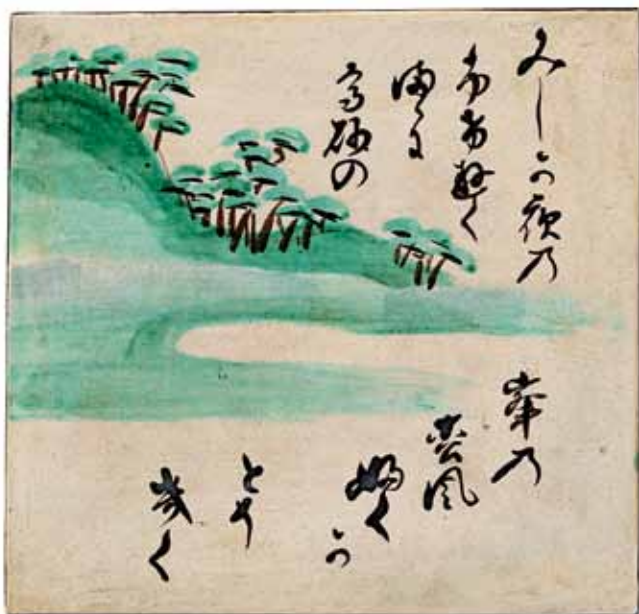 みしか夜乃
ふけゆく
まゝに
高砂の
峯乃
松風
ふく
か
とそ
きく